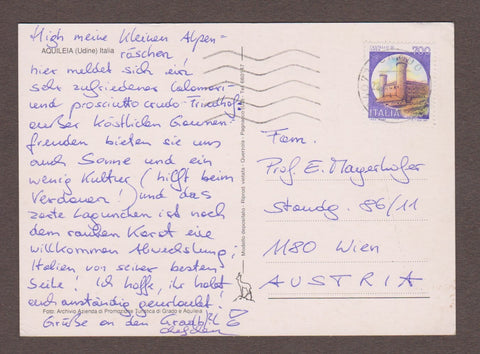 High meine kleinen Alpen-
AQUILEIA (Udine) Italia
räschen!
hier meldet sich ein
sehr zufriedener Calamari-
und prosciutto crudo-Friedhof.
außer köstlichen Gaumen-
freuden bieten sie uns
auch Sonne und ein
wenig Kultur (hilft beim
Verdauen!) und das
zarte Lagunchen ist nach
dem rauhen Karst eine
willkommen Abwechslung;
Italien von seiner besten
Seite! Ich hoffe, ihr habt
euch anständig geurlaubt!
Foto: Archivio Azienda di Promozione Turistica di Grado e Aquileia
Grüße an den
Modello depositato - Riprod. vietata
700
ITALIA
Fam.
Prof. E. Mayerhofer
Standg. 86/11
1180 Wien
AUSTRIA